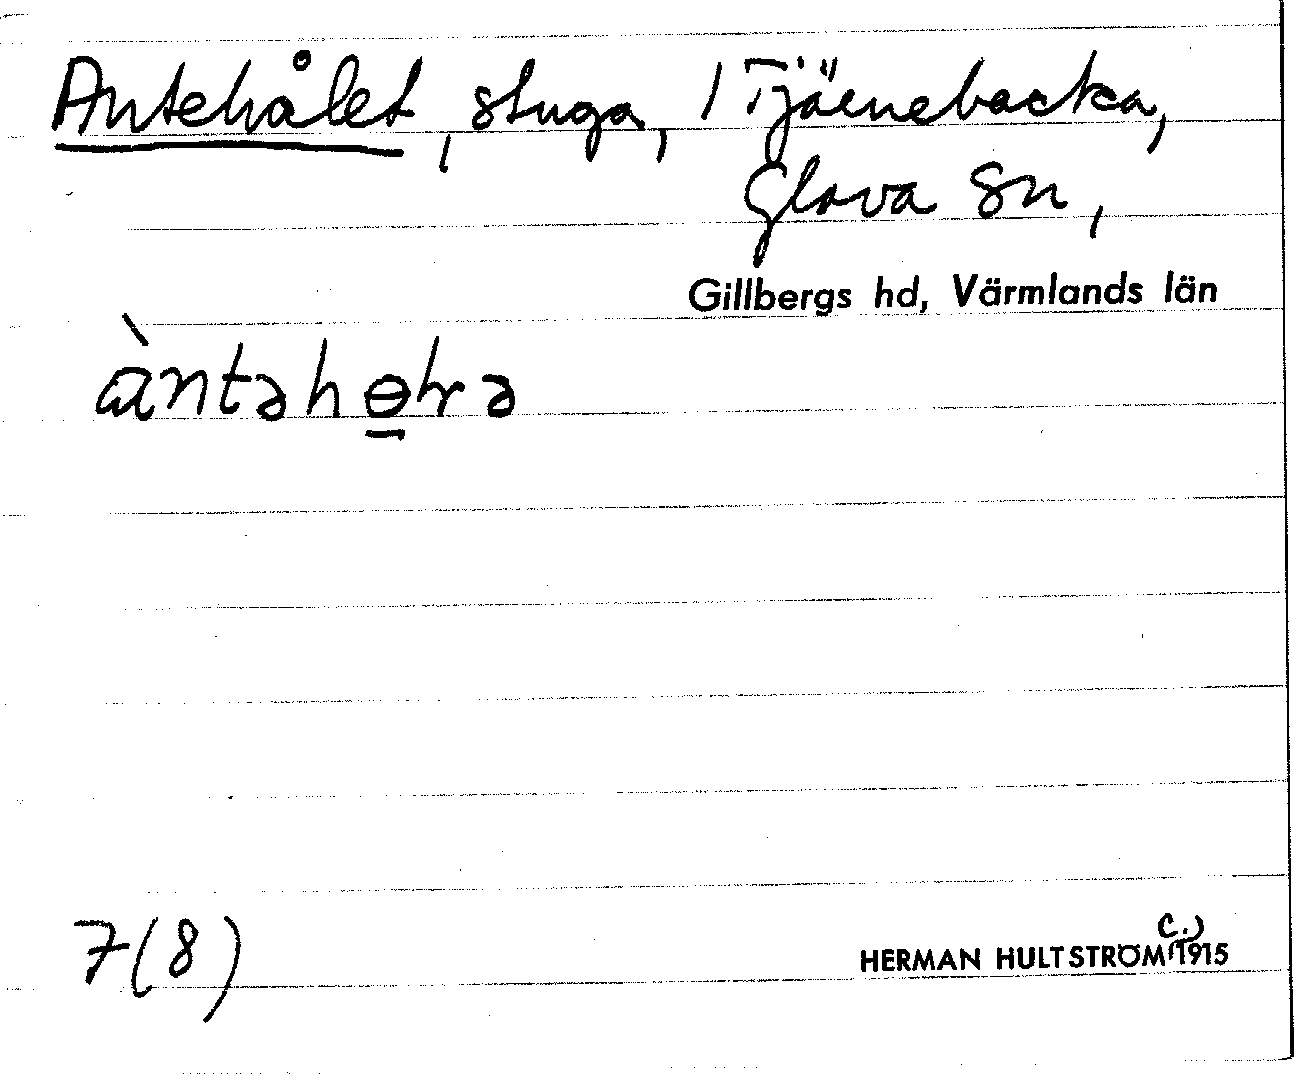 Antehålet, stuga, i Tjäenebacka,
Glava sn,
Gillbergs hd, Värmlands län
àntəhɵlrə
7(8)
HERMAN HULTSTRÖM (c.) 1915